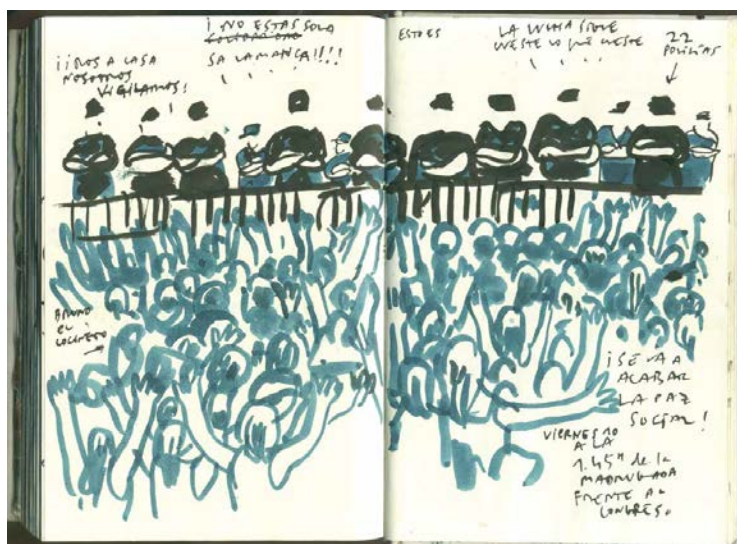 ¡¡IROS A CASA
NOSOTROS
VIGILAMOS!
¡NO ESTAS SOLA
SALAMANCA!!!!
ESTO ES
LA LUCHA SIGUE
CUESTE LO QUE CUESTE
22
POLICÍAS
BRUNO
EL
COCINERO
¡SE VA A
ACABAR
LA PAZ
SOCIAL!
VIERNES 10
A LA
1.45H de la
MADRUGADA
FRENTE AL
CONGRESO.